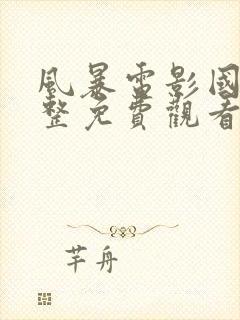 風暴雷影國
整免費觀看
芊舟